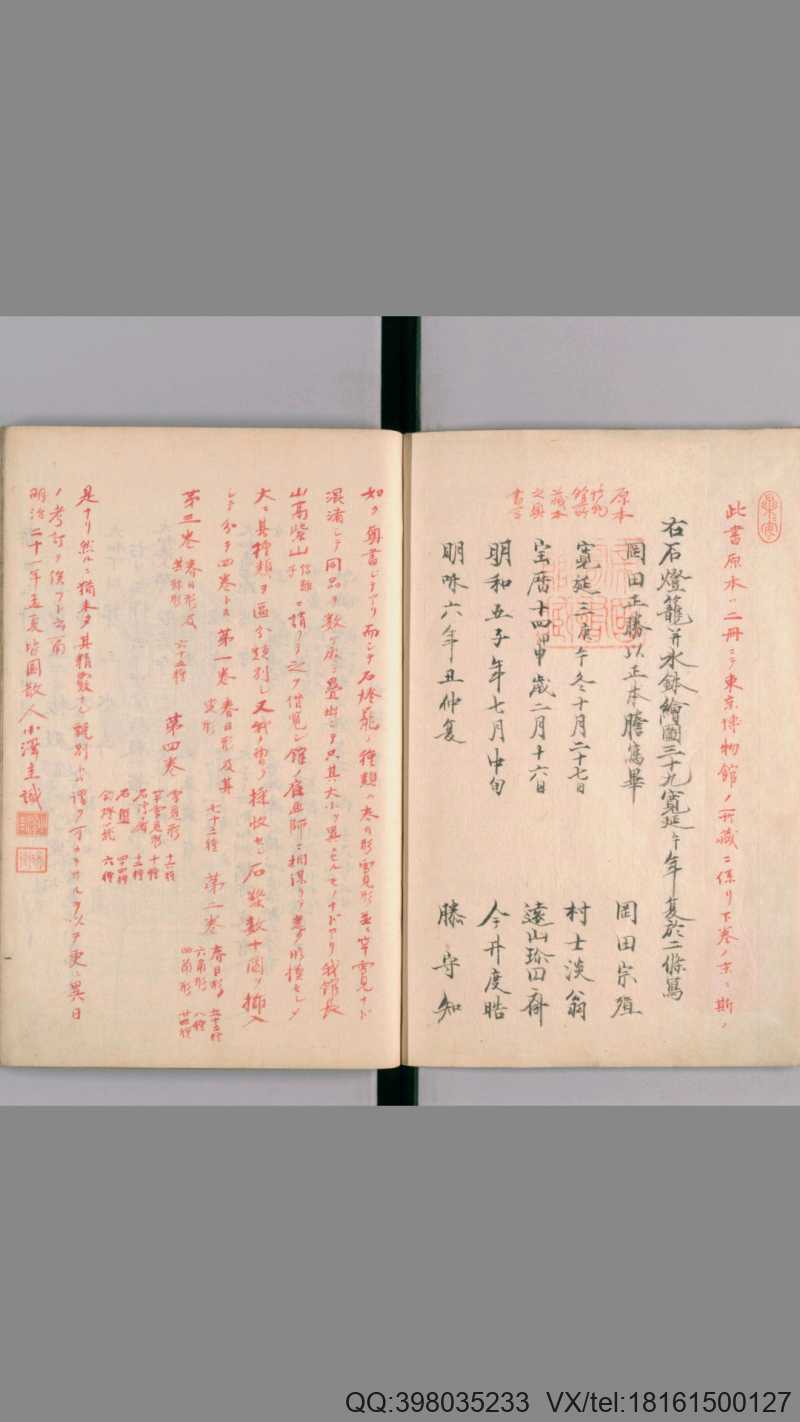 此書原本ハ二冊ニテ東京博物館ノ所蔵ニ係リ下巻ノ末ニ斯ノ
右石燈籠并水鉢繪圖三十九寛延午年夏於二條寫
岡田正勝以正本謄寫畢 岡田宗
寛延三庚午冬十月二十七日 村士淡翁
宝暦十四甲申歳二月十六日 遠山珍四
明和五子年七月中旬 今井度晧
明 六年丑仲夏 勝守知
原本
博物
館所
藏本
之奥
書
如ク奥書シテアリ而シテ石燈籠ノ種類ハ春日形雪見形並ニ草雪見ナド
混淆シテ同品ヲ数ヶ所ニ畳出シテ只其大小ヲ異ニセルモノナドアリ我館長
山高紫山 信離 ニ請フテ之ヲ借覧シ館ノ ニ相謀リテ 形模セシメ
大ニ其種類ヲ區分類別シ又我曽ノ採收セシ石燈数十圖ヲ挿入
シテ分チテ四巻トス第一巻 春日形及其変形 七十三種 第二巻 春日形 五十三種
六角形 八種
四角形 廿四種
第三巻 春日形及其 形 六十五種 第四巻 雪見形 十二種
草雪見形 十種
石 十三種
石 四種
六種
是ナリ然ルニ猶未タ其精覈ナル類別ト謂フ可カラサルヲ以テ更ニ異日
ノ考訂ヲ俟フト云爾
明治二十一年孟夏 園散人小澤圭誠
QQ:398035233 VX/tel:18161500127